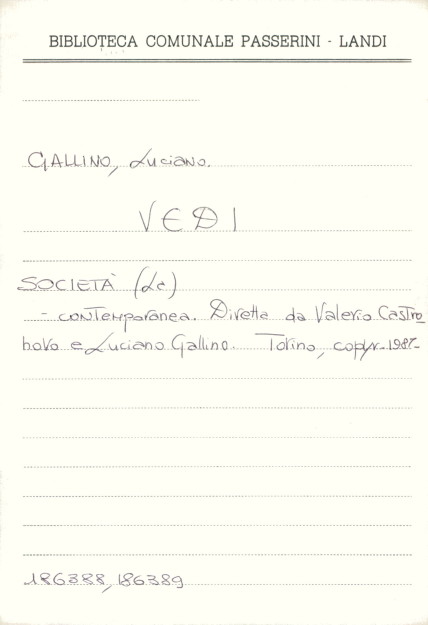 BIBLIOTECA COMUNALE PASSERINI - LANDI
GALLINO, Luciano.
VEDI
SOCIETÀ (La)
- contemporanea. Diretta da Valerio Castro
novo e Luciano Gallino. Torino, copyr. 1987-
186388, 186389